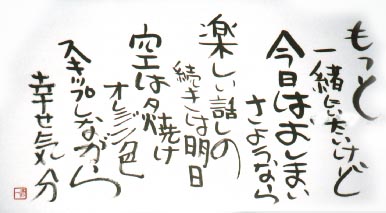 もっと
一緒にいたいけど
今日はおしまい
さようなら
楽しい話しの
続きは明日
空は夕焼け
オレンジ色
スキップしながら
幸せ気分